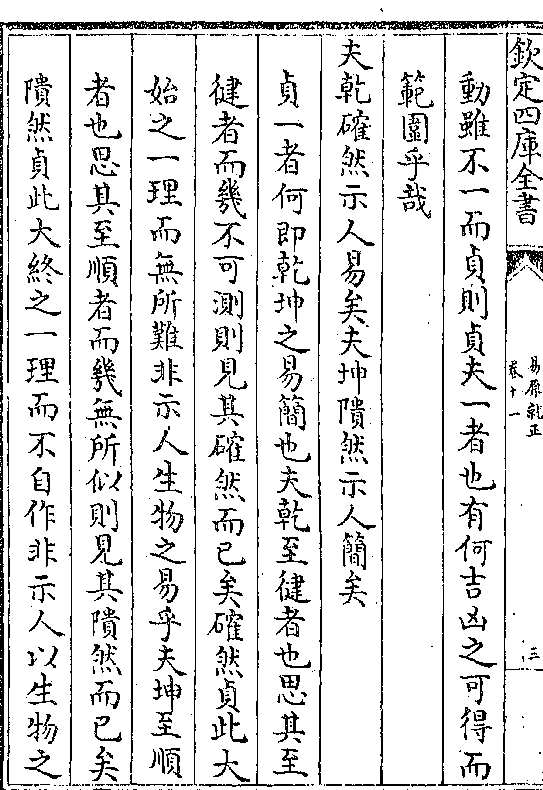 欽定四庫全書
易原就正
卷十一
三
動雖不一而貞則貞夫一者也有何吉凶之可得而
範圍乎哉
夫乾確然示人易矣夫坤隤然示人簡矣
貞一者何即乾坤之易簡也夫乾至健者也思其至
健者而幾不可測則見其確然而已矣確然貞此大
始之一理而無所難非示人生物之易乎夫坤至順
者也思其至順者而幾無所似則見其隤然而已矣
隤然貞此大終之一理而不自作非示人以生物之